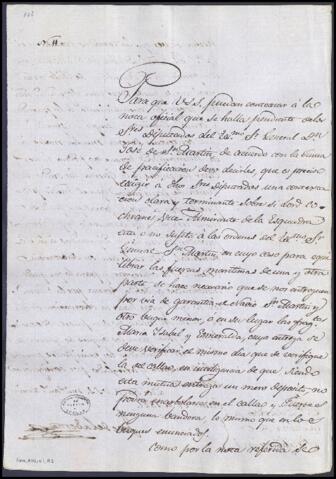 Nº 11.
Para que V.S.S. puedan contestar à la
nota oficial que se halla pendiente de los
Sres Diputados del Exmo Sr General Dn
José de Sn Martin, de acuerdo con la Junta
de pacificacion devo decirles, que es preciso
exigir à dhos Sres Diputados una contesta-
cion clara y terminante sobre si Lord Co-
chrane Vice Almirante de la Esquadra
esta o no sujeto à las ordenes del Exmo Sr
General Sn Martin, en cuyo caso para equi-
librar las fuerzas maritimas de una y otra
parte se hace necesario que se nos entreguen
por via de garantia el Navio Sn Martin y
otro buque menor, ò en su lugar las frag.s
Maria Ysabel y Esmeralda, cuya entrega se
deve verificar el mismo dia que se verifique
la del Callao, en inteligencia de que siendo
esta mutua entrega un mero deposito no
podrá enarbolarse en el Callao y Fuertes
ninguna bandera, lo mismo que en los
buques enunciados.
Como por la nota referida se